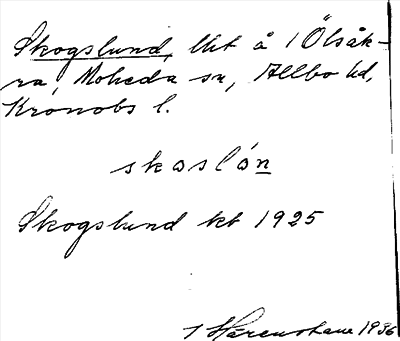 Skogslund, lht å 1 Ölsåk-
ra, Moheda sn, Allbo hd,
Kronobs l.
skoslón
Skogslund kt 1925
1936